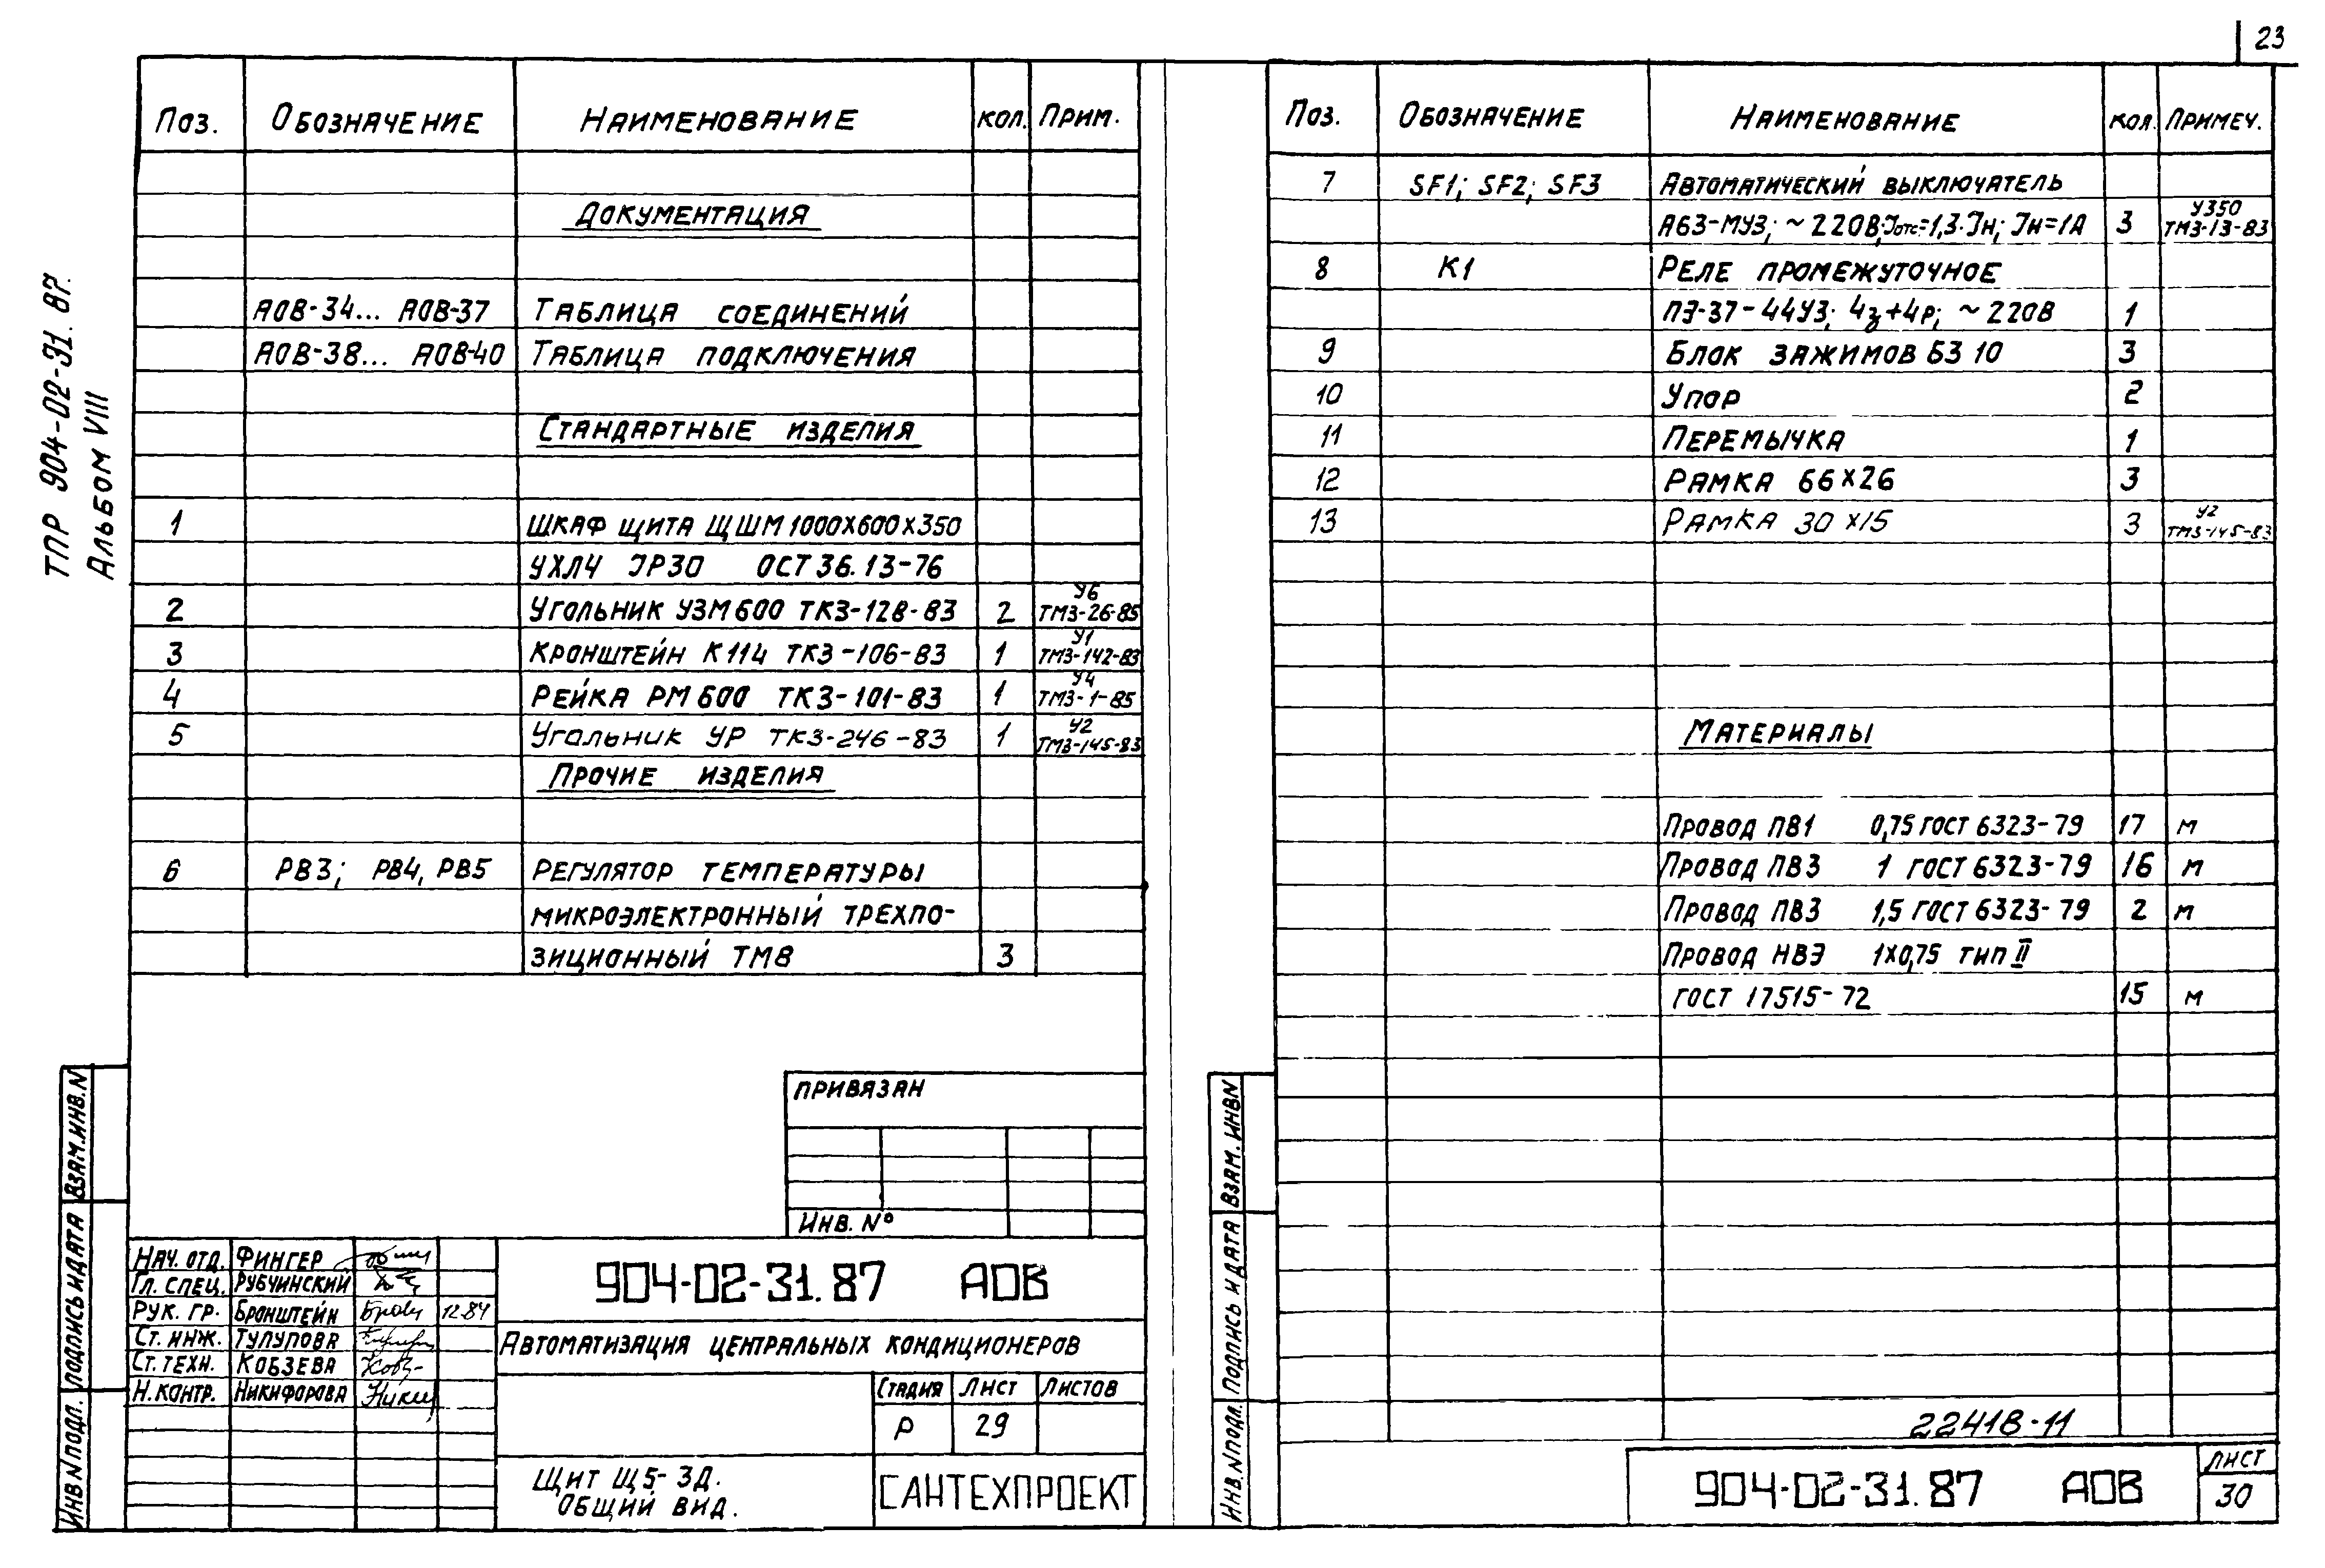 23
ТПР 904-02-31.87.
Альбом VIII
Поз. Обозначение Наименование кол. Прим.
Документация
АОВ-34... АОВ-37 Таблица соединений
АОВ-38... АОВ-40 Таблица подключения
Стандартные изделия
1 Шкаф щита ЩШМ 1000х600х350
УХЛ4 JР30 ОСТ 36.13-76
2 Угольник УЗМ 600 ТКЗ-128-83 2 У6 ТМЗ-26-85
3 Кронштейн К114 ТКЗ-106-83 1 У1 ТМЗ-142-83
4 Рейка РМ 600 ТКЗ-101-83 1 У4 ТМЗ-1-85
5 Угольник УР ТКЗ-246-83 1 У2 ТМЗ-145-83
Прочие изделия
6 РВ3; РВ4, РВ5 Регулятор температуры
микроэлектронный трехпо-
зиционный ТМ8 3
Привязан
Инв. №
Нач. отд. Фингер
Гл. спец. Рубчинский
Рук. гр. Бронштейн 12.84
Ст. инж. Тулупова
Ст. техн. Кобзева
Н. контр. Никифорова
904-02-31.87 АОВ
Автоматизация центральных кондиционеров
Стадия Лист Листов
Р 29
Щит Щ5-3Д.
Общий вид.
САНТЕХПРОЕКТ
Взам. инв. N
Подпись и дата
Инв. N подл.
Поз. Обозначение Наименование кол. Примеч.
7 SF1; SF2; SF3 Автоматический выключатель
А63-МУ3; ~220В; Jотс=1,3·Jн; Jн=1А 3 У350 ТМЗ-13-83
8 К1 Реле промежуточное
ПЭ-37-44У3; 4з+4р; ~220В 1
9 Блок зажимов БЗ 10 3
10 Упор 2
11 Перемычка 1
12 Рамка 66х26 3
13 Рамка 30х15 3 У2 ТМЗ-145-83
Материалы
Провод ПВ1 0,75 ГОСТ 6323-79 17 м
Провод ПВ3 1 ГОСТ 6323-79 16 м
Провод ПВ3 1,5 ГОСТ 6323-79 2 м
Провод НВЭ 1х0,75 тип II
ГОСТ 17515-72 15 м
22418-11
904-02-31.87 АОВ
Лист
30
Взам. инв N
Подпись и дата
Инв. N подл.